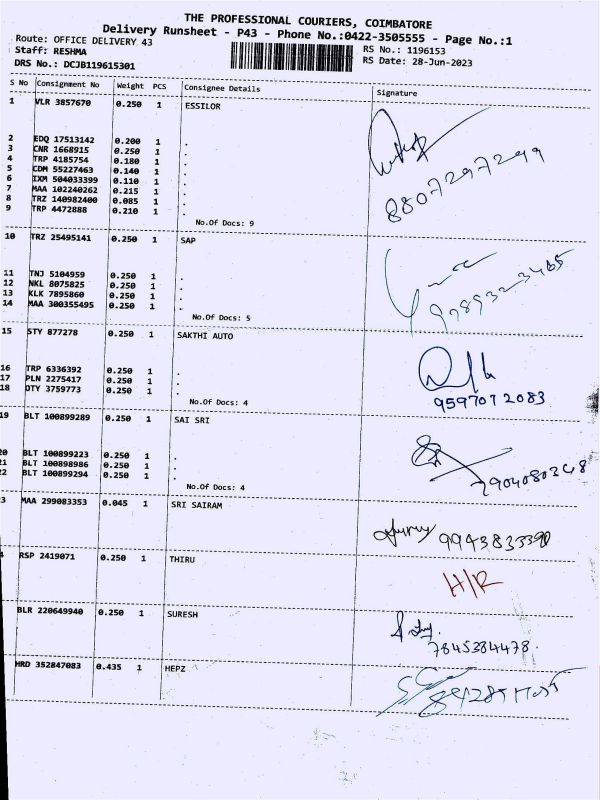 THE PROFESSIONAL COURIERS, COIMBATORE
Delivery Runsheet - P43 - Phone No.:0422-3505555 - Page No.:1
Route: OFFICE DELIVERY 43
RS No.: 1196153
Staff: RESHMA
RS Date: 28-Jun-2023
DRS No.: DCJB119615301
S No Consignment No Weight PCS Consignee Details Signature
1 VLR 3857670 0.250 1 ESSILOR
2 EDQ 17513142 0.200 1 .
3 CNR 1668915 0.250 1 .
4 TRP 4185754 0.180 1 .
5 CDM 55227463 0.140 1 .
6 IXM 504033399 0.110 1 .
7 MAA 102240262 0.215 1 .
8 TRZ 140982400 0.085 1 .
9 TRP 4472888 0.210 1 .
8807297299
No.Of Docs: 9
10 TRZ 25495141 0.250 1 SAP
11 TNJ 5104959 0.250 1 .
12 NKL 8075825 0.250 1 .
13 KLK 7895860 0.250 1 .
14 MAA 300355495 0.250 1 .
No.Of Docs: 5
15 STY 877278 0.250 1 SAKTHI AUTO
16 TRP 6336392 0.250 1 .
17 PLN 2275417 0.250 1 .
18 DTY 3759773 0.250 1 .
9597072083
No.Of Docs: 4
19 BLT 100899289 0.250 1 SAI SRI
20 BLT 100899223 0.250 1 .
21 BLT 100898986 0.250 1 .
22 BLT 100899294 0.250 1 .
7904080348
No.Of Docs: 4
3 MAA 299083353 0.045 1 SRI SAIRAM
RSP 2419071 0.250 1 THIRU
H/R
BLR 220649940 0.250 1 SURESH
7845384478.
HRD 352847083 0.435 1 HEPZ